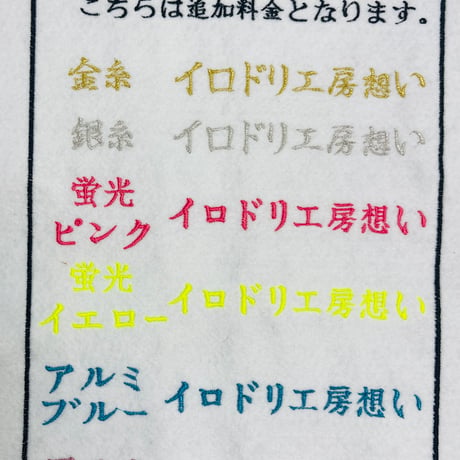 こちらは追加料金となります。
金糸 イロドリエ房想い
銀糸 イロドリエ房想い
蛍光
ピンク イロドリエ房想い
蛍光
イエロー イロドリエ房想い
アルミ
ブルー イロドリエ房想い